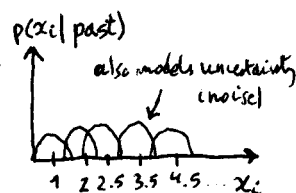 p(xi | past)
also models uncertainty
(noise)
1 2 2.5 3.5 4.5 ... xi